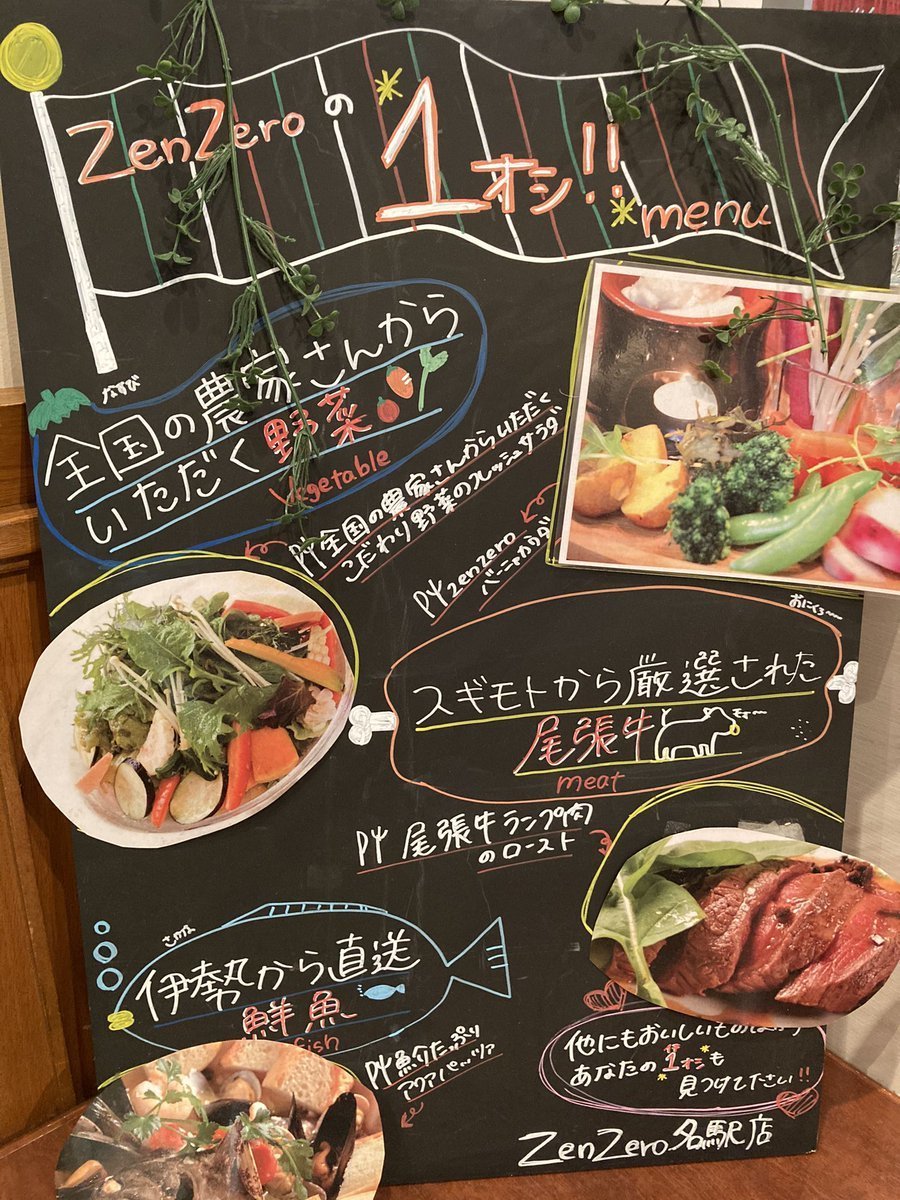 ZenZeroの
1オシ!!
menu
なすび
全国の農家さんから
いただく野菜
Vegetable
P4 全国の農家さんからいただく
こだわり野菜のフレッシュサラダ
P4 zenzero
バーニャカウダ
おにく
スギモトから厳選された
尾張牛
モォ〜
meat
P4 尾張牛ランプ肉
のロースト
伊勢から直送
鮮魚
fish
P4 魚介たっぷり
アクアパッツァ
他にもおいしいもの
あなたの1オシも
見つけて下さい!!
ZenZero名駅店